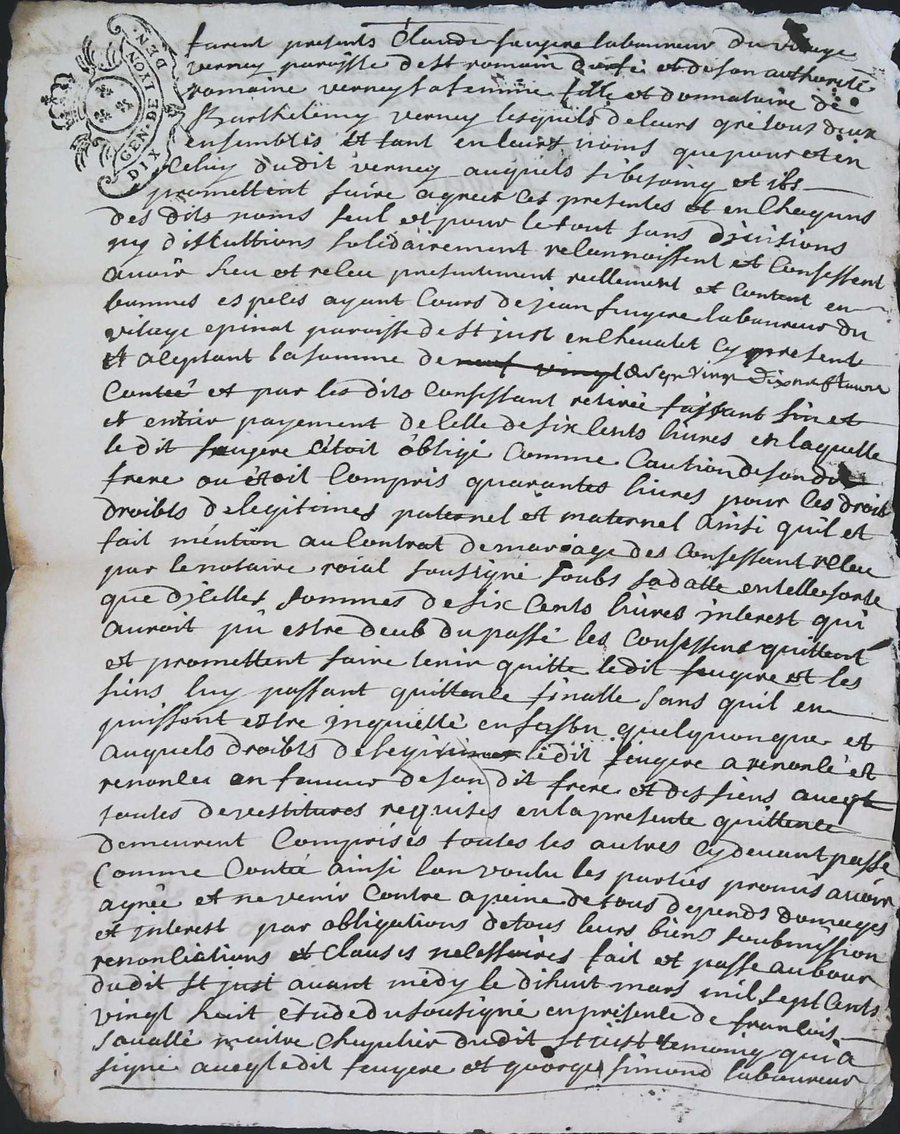 GEN. DE LYON DIX DEN
furent presents Claude faugere labanreur du vilage
verney paroisse de st romain durfé et de son authorité
romaine verney sa femme fille et donnataire de
Barthelemy verney lesquels de leurs gré tous deux
ensembles et tant en leurs noms que pour et en
Celuy dudit verney auquels si besoing et ils
promettent faire agreer Ces presentes et en Chaquns
des dits noms seul et pour le tout sans divisions
ny discuttions solidairement reconnoissent et Confessent
avoir heu et receu presentement reellement et Contant en
bonnes especes ayant Cours de jean faugere labaureur du
vilage epinat paroisse de st just en Chevalet Cy present
et aceptant la somme de
Contée et par les dits Confessant retirée faissant fin et
et entier payement de Celle de six Cents livres en laquelle
le dit feugere étoit obligé Comme Caution de son dit
frere ou étoit Compris quarantes livres pour Ces droit
droibts de legitimes paternel et maternel ainsi quil et
fait méntion au Contrat de mariage des Confessant receu
par le notaire roial soussigné soubs sa datte en telle sorte
que dicelles sommes de six Cents livres interest qui
auroit pû estre deub du passé les Confessent quittent
et promettent faire tenir quitte ledit feugere et les
siens luy passant quittence finalle sans quil en
puissont estre inquietté en fasson quelquonque et
auquels droibts de legitimes ledit feugere a renoncé et
renonce en faveur de son dit frere et des siens aveqt
toutes devestitures requises en la presente quittence
demeurent Comprises toutes les autres Cy devant passé
Comme Contée ainsi lon voulu les parties promis avoir
agrée et ne venir Contre a peine de tous depends domages
et interest par obligations de tous leurs biens soubmission
renonciations et Clauses necessaires fait et passé au bour
dudit st just avant médy le dihuit mars mil sept Cents
vingt huit etude du soussigné en présence de francois
savallé maitre Chapelier dudit st just temoing qui a
signé aveq ledit feugere et george simond labaureur